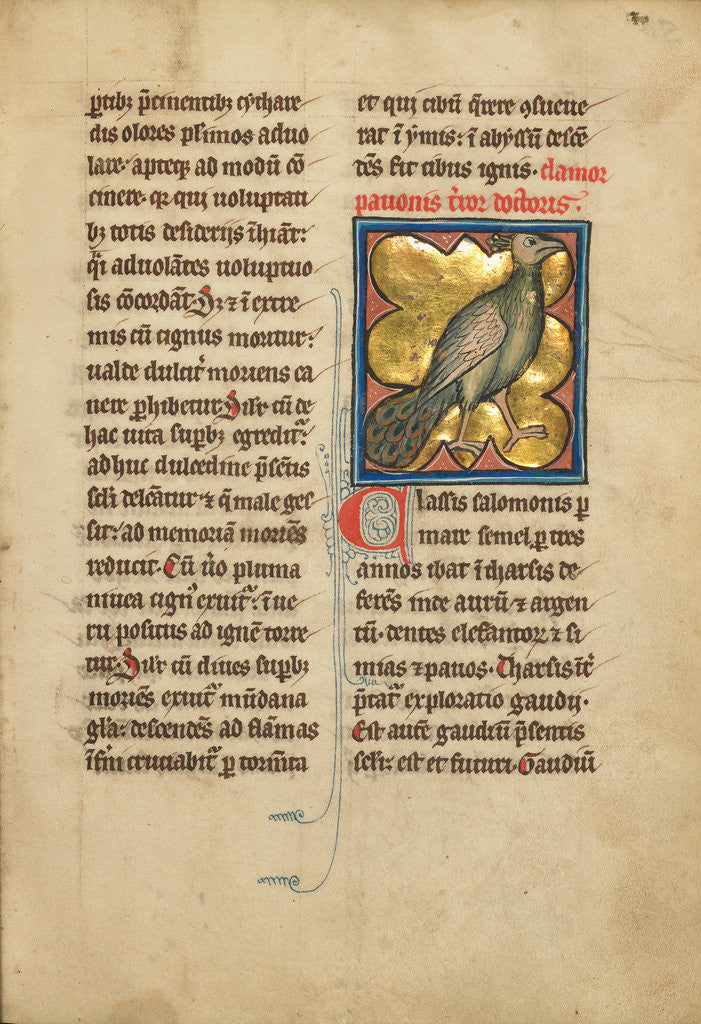 ꝑtibꝫ p̄cinentibꝫ cythare
dis olores pl'imos aduo
lare· apteqꝫ ad modū cō
cinere· qꝛ qui uoluptati
bꝫ totis desiderijs īhiāt:
q̄i aduolātes uoluptuo
sis cōcordāt· Sꝫ ⁊ ī extre
mis cū cignus moritur:
ualde dulcit' moriens ca
nere ꝑhibetur· Silr' cū de
hac uita supbꝫ egredit':
adhuc dulcedine p̄sētis
scl'i delcātur ⁊ q̄ male ges
sit: ad memoriā moriēs
reducit· Cū u̓o pluma
niuea cign' exuit': ī ue
ru positus ad ignē torre
tur· Silr' cū diues supbꝫ
moriēs exuit' mūdana
gl'a: descendēs ad flāmas
īfn̄i cruciabit' ꝑ tormīta
et qui cibū q̄rere ꝯsueue
rat ī ymis: ī abyssū descē
dēs fit cibus ignis· clamor
pauonis t'ror doctoris.
Classis salomonis ꝑ
mare semel ꝑ tres
annos ibat ī tharsis de
ferēs inde aurū ⁊ argen
tū· dentes elefantoꝝ ⁊ si
mias ⁊ pauos· Tharsis īt'
p̄tat' exploratio gaudij·
Est autē gaudiū p̄sentis
scl'i: est et futuri· Gaudiū